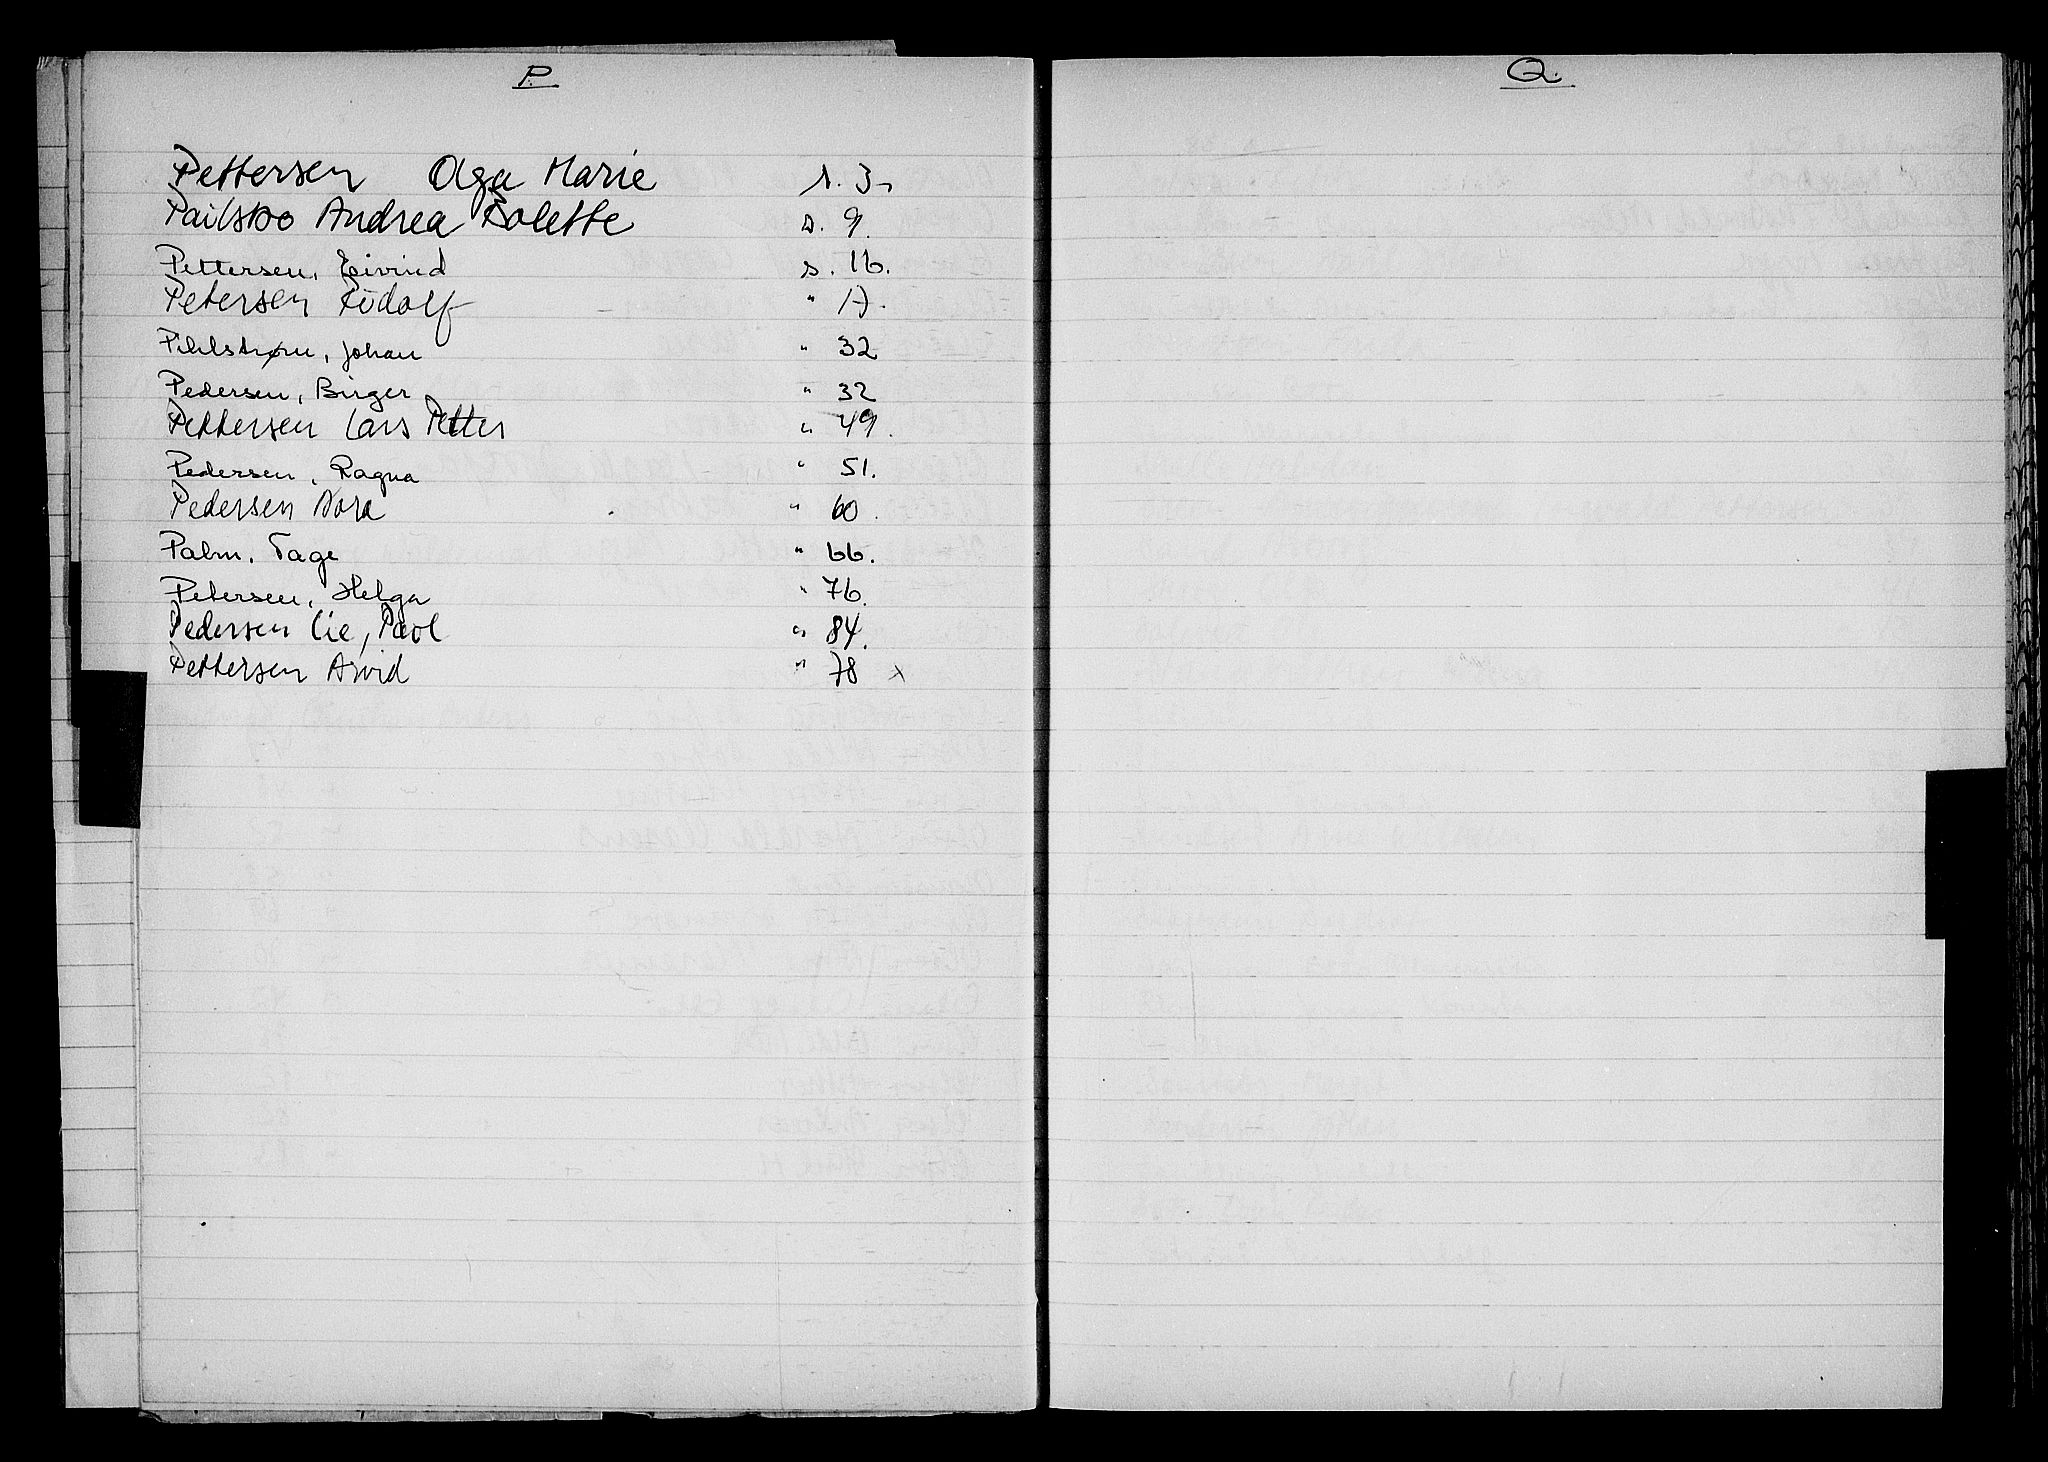 P.
Pettersen Olga Marie s. 3
Andrea Bolette s. 9.
Pettersen, Eivind s. 16.
Petersen Rudolf " 17.
Pihlstrøm, Johan " 32
Pedersen, Birger " 32
Pettersen Lars Petter " 49.
Pedersen, Ragna " 51.
Pedersen Nora " 60.
Palm, Tage " 66.
Petersen, Helga " 76.
Pedersen Lie, Paul " 84.
Pettersen Arvid " 78 x
Q.